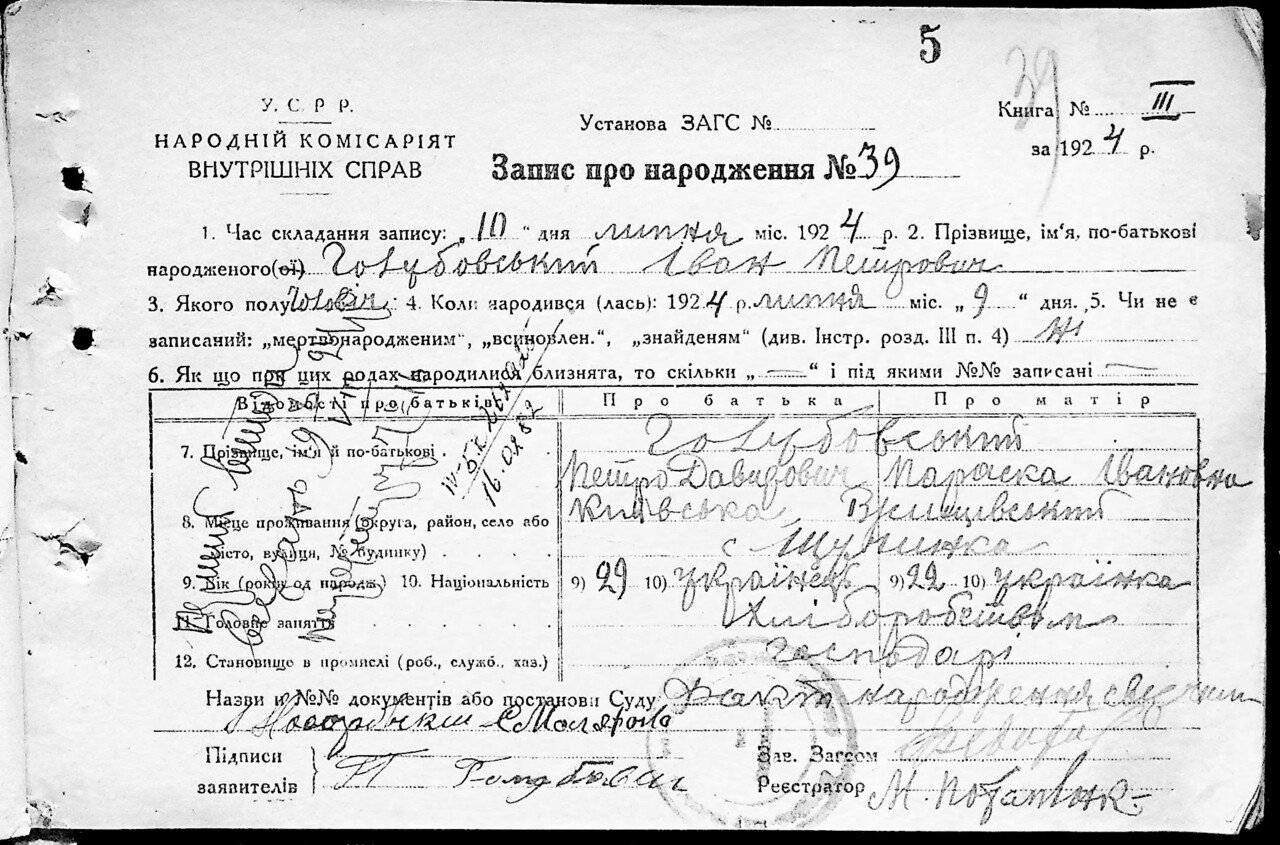 5
39
У. С. Р. Р.
НАРОДНІЙ КОМІСАРІЯТ
ВНУТРІШНІХ СПРАВ
Установа ЗАГС №
Книга № III
за 1924 р.
Запис про народження № 39
1. Час складання запису: „10“ дня липня міс. 1924 р. 2. Прізвище, ім'я, по-батькові
народженого(ої) Голубовський Іван Петрович
3. Якого полу Чоловіч. 4. Коли народився (лась): 1924 р. липня міс. „9“ дня. 5. Чи не є
записаний: „мертвонародженим“, „всиновлен.“, „знайденям“ (див. Інстр. розд. III п. 4) ні
6. Як що при цих родах народилися близнята, то скільки „—“ і під якими №№ записані —
Відомості про батьків Про батька Про матір
7. Прізвище, ім'я й по-батькові Голубовський
Петро Давидович Параска Івановна
8. Місце проживання (округа, район, село або Київська Ржищівський
місто, вулиця, № будинку) с Щучинка
9. Вік (років од народж.) 10. Національність 9) 29 10) українець 9) 22 10) українка
11. Головне заняття Хліборобством
12. Становище в промислі (роб., служб., хаз.) господарі
Назви и №№ документів або постанови Суду Факт народження
Підписи
заявителів П Голубовск
Зав. Загсом
Реєстратор М. Потапенк